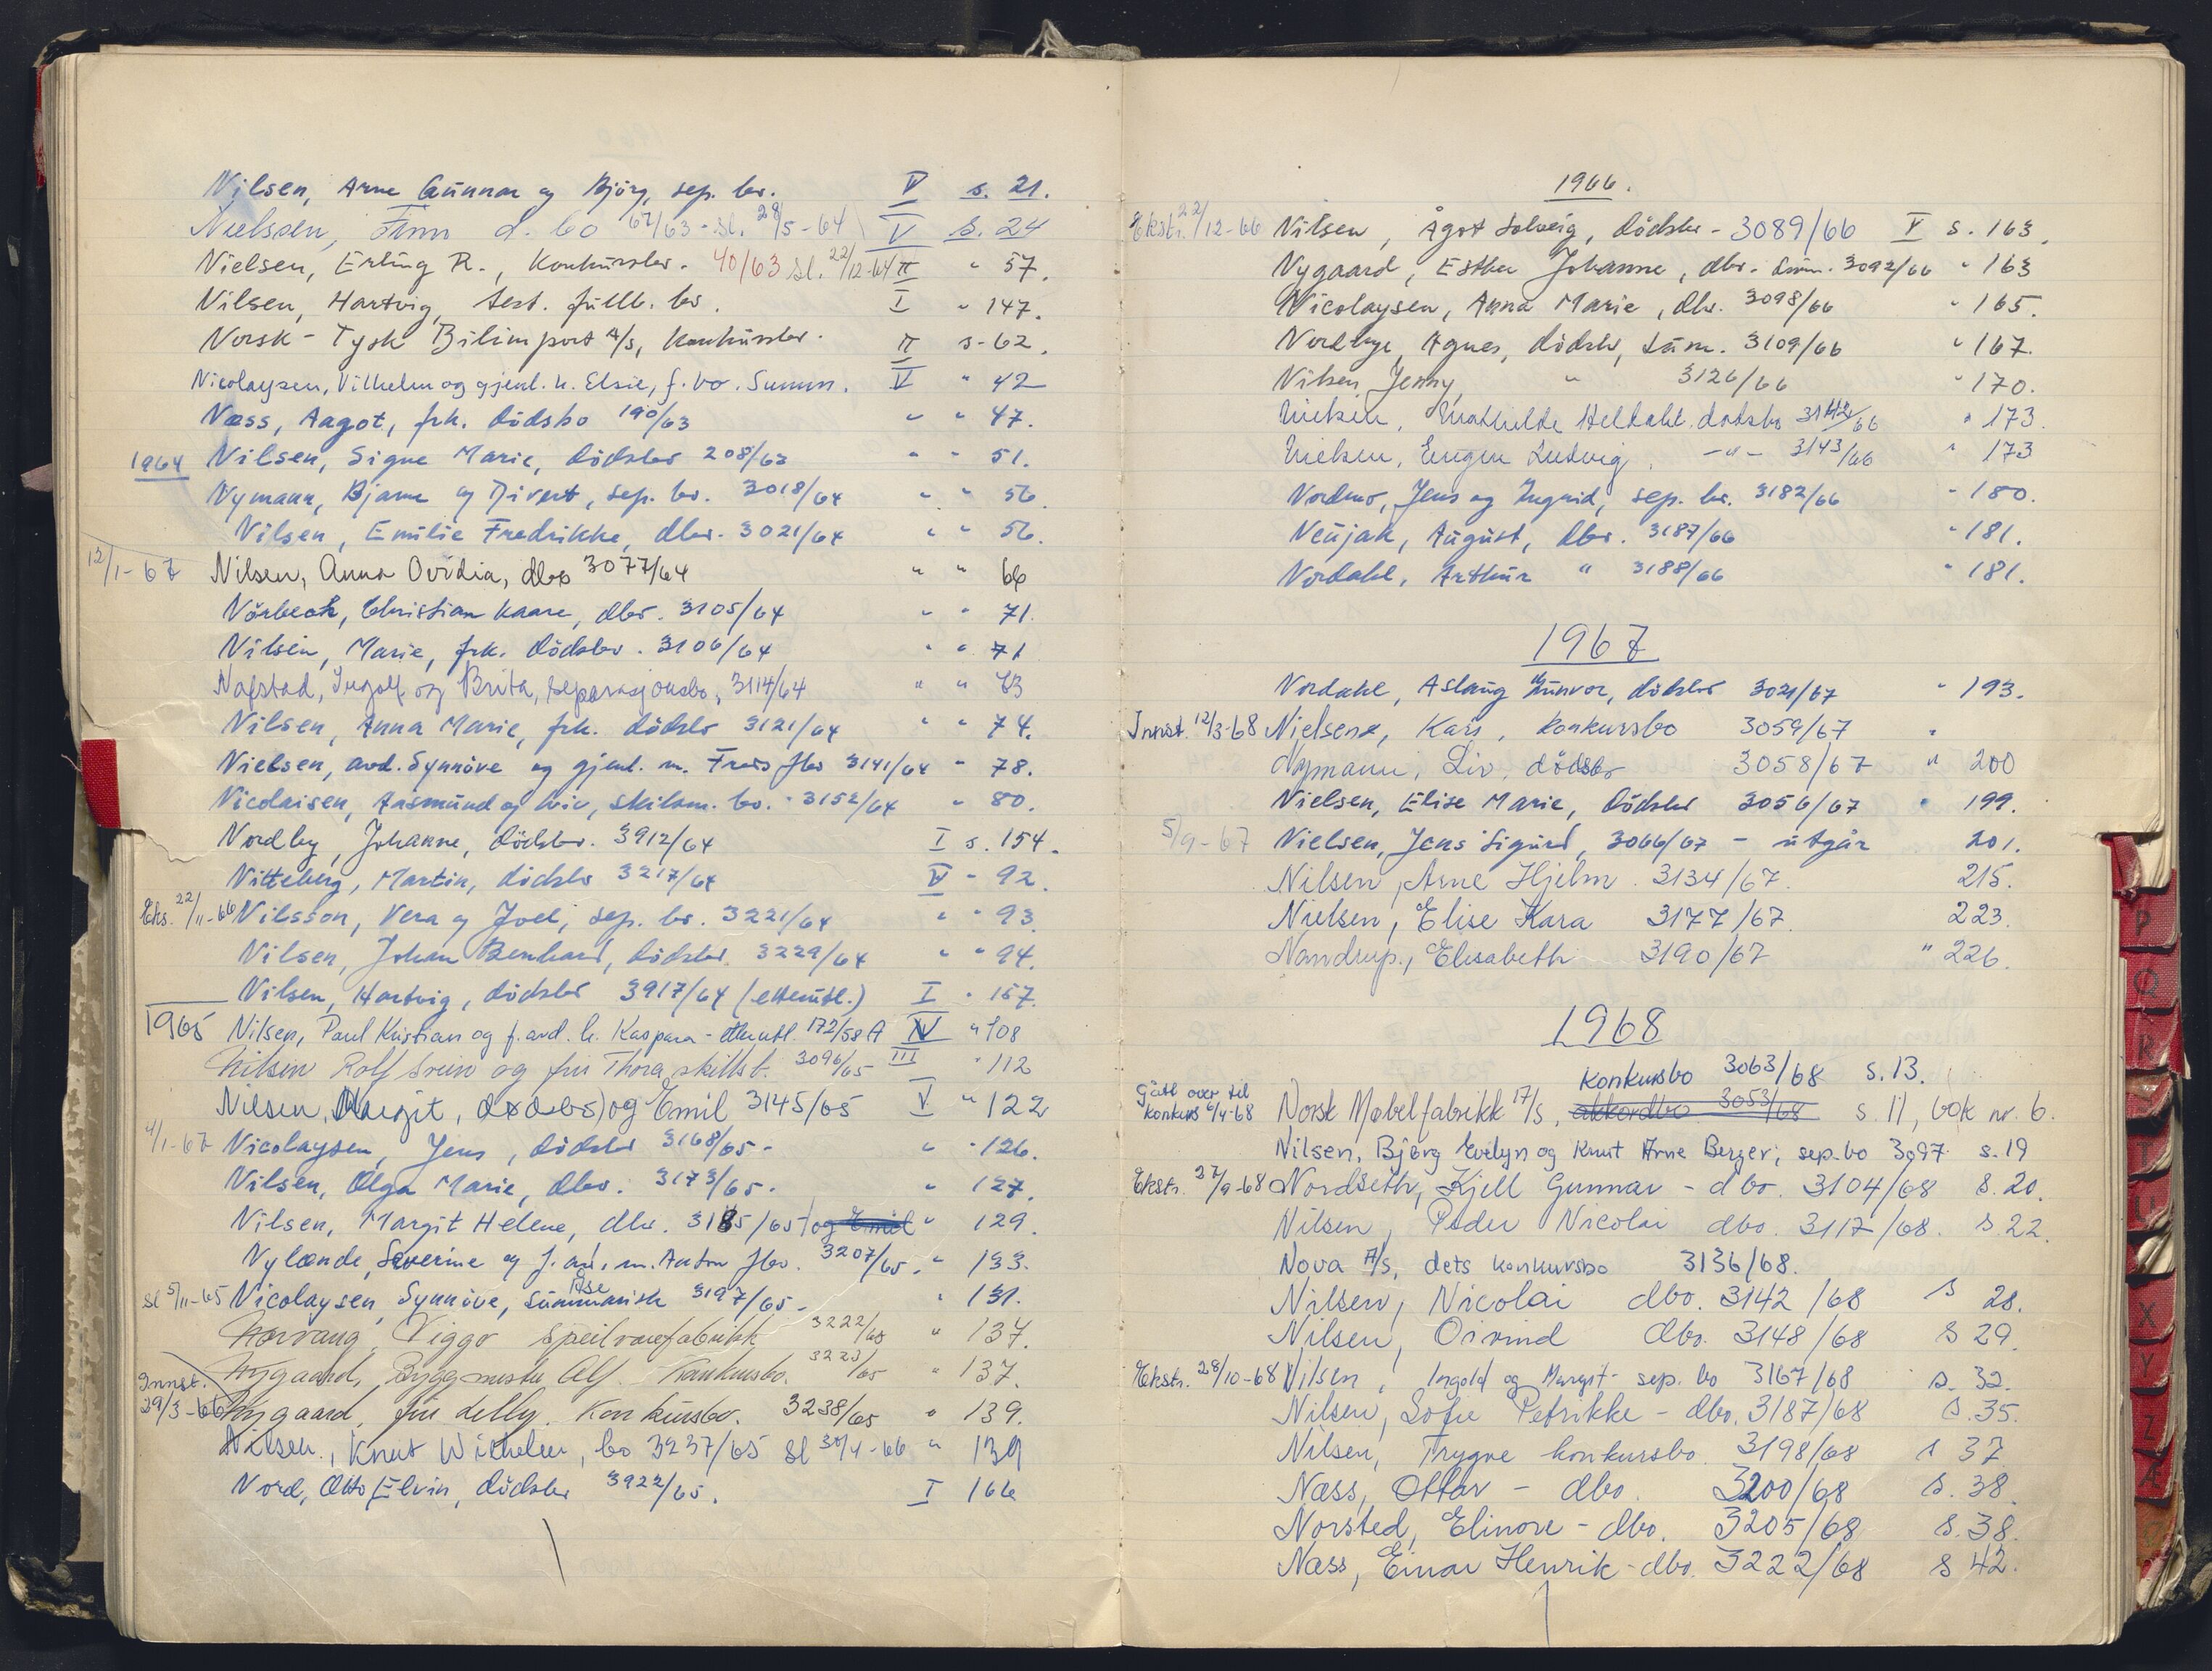 Nilsen, Arne Gunnar og Bjørg, sep. bo. V s. 21.
Nielssen, Finn d. bo 67/63 - sl. 28/5-64 V s. 24
Nielsen, Erling R., Konkursbo. 40/63 sl. 22/12-64 II " 57.
Nilsen, Hartvig, test. fullb. bo. I " 147.
Norsk - Tysk Bilimport A/s, konkursbo. II s. 62.
Nicolaysen, Vilhelm og gjenl. h. Elsie, f. bo. Summ. V " 42
Næss, Aagot, frk. dödsbo 190/63 " " 47.
1964 Nilsen, Signe Marie, dödsbo 208/63 " " 51.
Nymann, Bjarne og Divert, sep. bo. 3018/64 " " 56
Nilsen, Emilie Fredrikke, dbo. 3021/64 " " 56.
12/1-67 Nilsen, Anna Ovidia, dbo 3077/64 " " 66
Nörbeck, Christian Kaare, dbo. 3105/64 " " 71.
Nilsen, Marie, frk. dödsbo. 3106/64 " " 71
Nafstad, Ingolf og Brita, separasjonsbo, 3114/64 " " 73
Nilsen, Anna Marie, frk. dödsbo 3121/64 " " 74.
Nielsen, avd. Synnöve og gjenl. m. fbo 3141/64 " 78.
Nicolaisen, Aasmund og Liv, skilsm. bo. 3152/64 " 80.
Nordby, Johanne, dödsbo. 3912/64 I s. 154.
Nitteberg, Martin, dödsbo 3217/64 V " 92.
Eks. 22/11-66 Nilsson, Vera og Joel, sep. bo. 3221/64 " " 93.
Nilsen, Johan Bernhard, dödsbo. 3229/64 " " 94.
Nilsen, Hartvig, dödsbo 3917/64 (etterutl.) I " 157.
1965 Nilsen, Paul Kristian og f. avd. h. Kaspara - etterutl. 172/58 A IV " 108
Nilsen Rolf Svein og fru Thora, skillsb. 3096/65 III " 112
Nilsen, Margit, dødsbo) og Emil 3145/65 V " 122
4/1-67 Nicolaysen, Jens, dödsbo 3168/65 - " " 126.
Nilsen, Olga Marie, dbo. 3173/65. " 127.
Nilsen, Margit Helene, dbo. 3185/65) og Emil " 129.
Nylænde, Severine og f. avd. m. Anton fbo. 3207/65. " 133.
sl 5/11-65 Nicolaysen, Synnöve, Åse summarisk 3197/65 - " 131.
Norvang, Viggo Speilvarefabrikk 3222/65 " 137.
Innst. Nygaard, Byggmester Alf. Konkursbo. 3223/65 " 137.
29/3-66 Nygaard, fru Lelly. Konkursbo. 3238/65 " 139.
Nilsen, Knut Wilhelm, bo 3237/65 sl 30/4-66 " 139
Nord, Otto Elvin, dödsbo 3922/65. I 166
1966.
Ekstr. 22/12-66 Nilsen, Ågot Solveig, dödsbo - 3089/66 V s. 163.
Nygaard, Esther Johanne, dbo. summ. 3092/66 " 163
Nicolaysen, Anna Marie, dbo. 3098/66 " 165.
Nordbye, Agnes, dödsbo, summ. 3109/66 " 167.
Nilsen Jenny, " 3126/66 " 170.
Nielsen, Mathilde Heldahl. dødsbo 3142/66 " 173.
Nielsen, Eugen Ludvig, -"- 3143/66 " 173
Nordmo, Jens og Ingrid, sep. bo. 3182/66 " 180.
Neujak, August, dbo. 3187/66 " 181.
Nordahl, Arthur " 3188/66 " 181.
1967
Nordahl, Aslaug Gunvor, dödsbo 3021/67 " 193.
Innst. 12/3-68 Nielsen, Kais, konkursbo 3059/67 "
Nymann, Liv, dødsbo 3058/67 " 200
Nielsen, Elise Marie, dödsbo 3056/67 " 199.
5/9-67 Nielsen, Jens Sigurd, 3066/67 - utgår 201.
Nilsen, Arne Hjelm. 3134/67. 215.
Nielsen, Elise Kara 3177/67. 223.
Nandrup, Elisabeth 3190/67 " 226.
1968
konkursbo 3063/68 s. 13.
Gått over til
konkurs /4-68 Norsk Møbelfabrikk A/s, akkordbo 3053/68 s. 11, bok nr. 6.
Nilsen, Bjørg Evelyn og Knut Arne Berger, sep. bo 3097 s. 19
Ekstr. 27/9-68 Nordseth, Kjell Gunnar - dbo. 3104/68 s. 20.
Nilsen, Peder Nicolai dbo. 3117/68. s. 22.
Nova A/s, dets konkursbo 3136/68.
Nilsen, Nicolai dbo. 3142/68 s 28.
Nilsen, Oivind dbo. 3148/68 s 29.
Ekstr. 28/10-68 Nilsen, Ingold og Margit - sep. bo 3167/68 s. 32.
Nilsen, Sofie Petrikke - dbo. 3187/68 s. 35.
Nilsen, Trygve konkursbo. 3198/68 s 37
Næss, Ottar - dbo. 3200/68 s. 38.
Norsted, Elinore - dbo. 3205/68 s. 38.
Næss, Einar Henrik - dbo. 3222/68 s 42.
P
Q
R
T
U
X
Y
Z
Æ